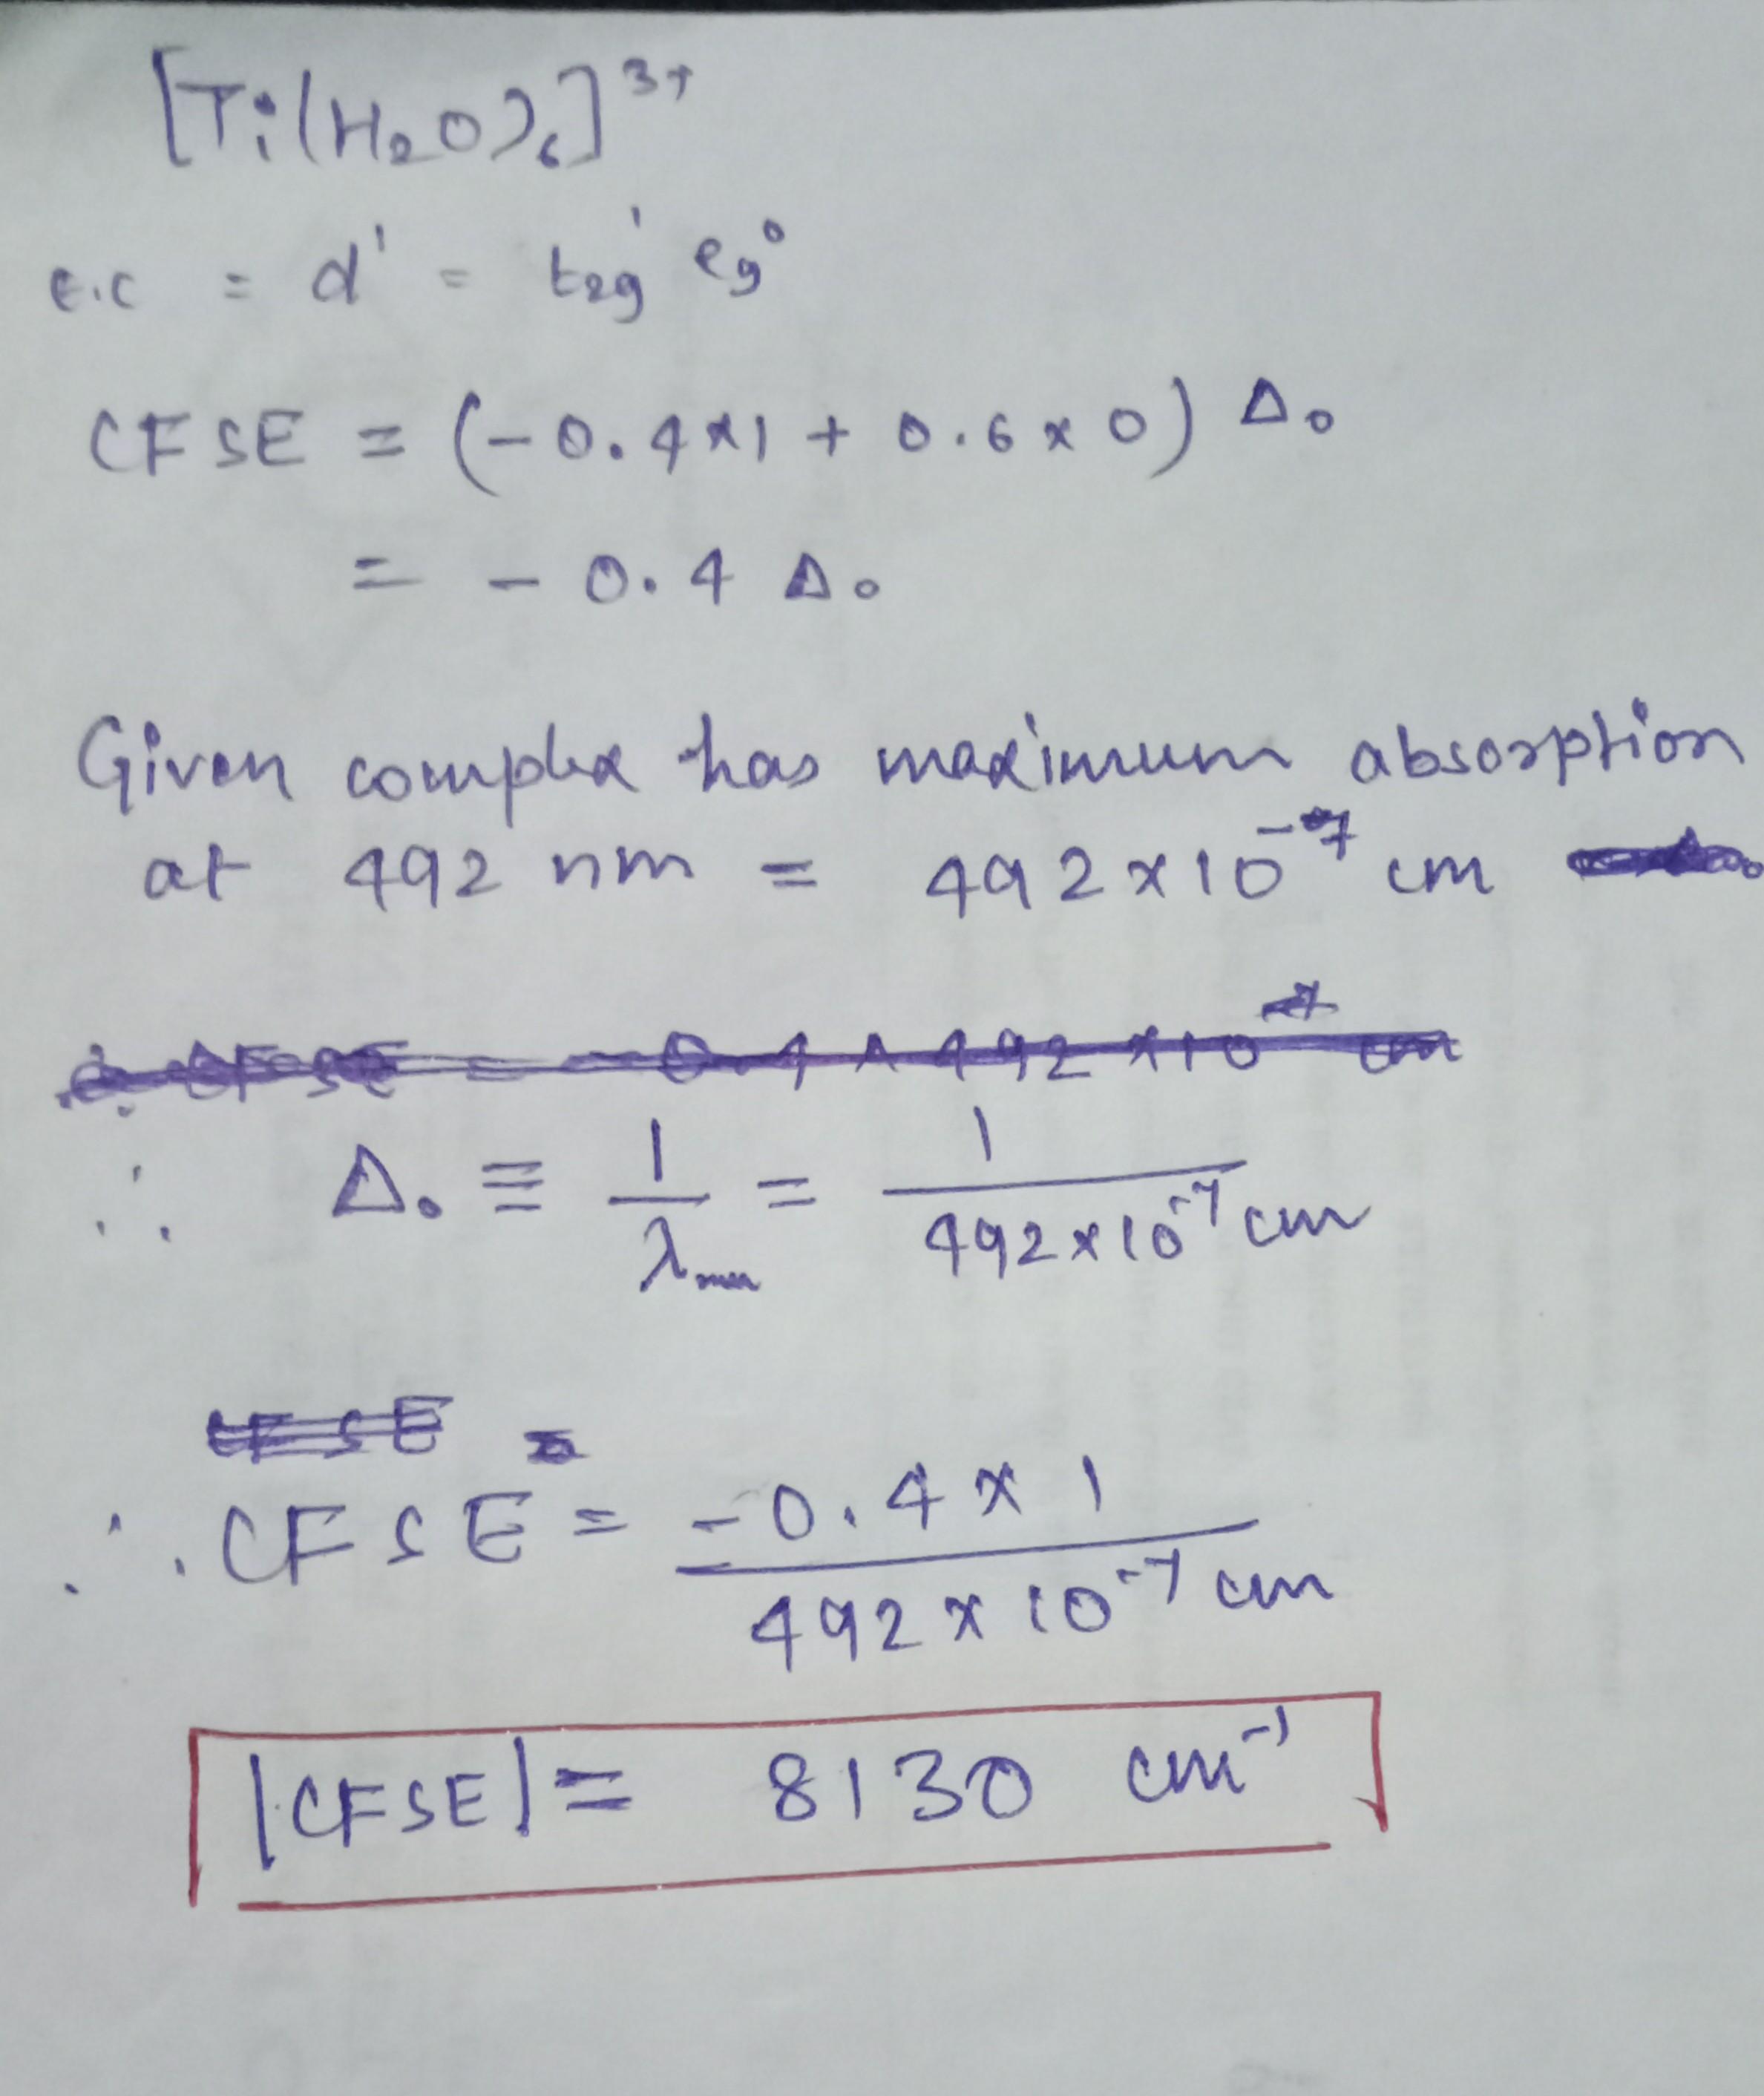 [Ti(H₂O)₆]³⁺
e.c = d¹ = t₂g¹ eg⁰
CFSE = (-0.4×1 + 0.6×0) Δ₀
= -0.4 Δ₀
Given complex has maximum absorption
at 492 nm = 492×10⁻⁷ cm
∴ Δ₀ ≡ 1/λmax = 1/492×10⁻⁷ cm
∴ CFSE = -0.4 × 1/492×10⁻⁷ cm
|CFSE| = 8130 cm⁻¹